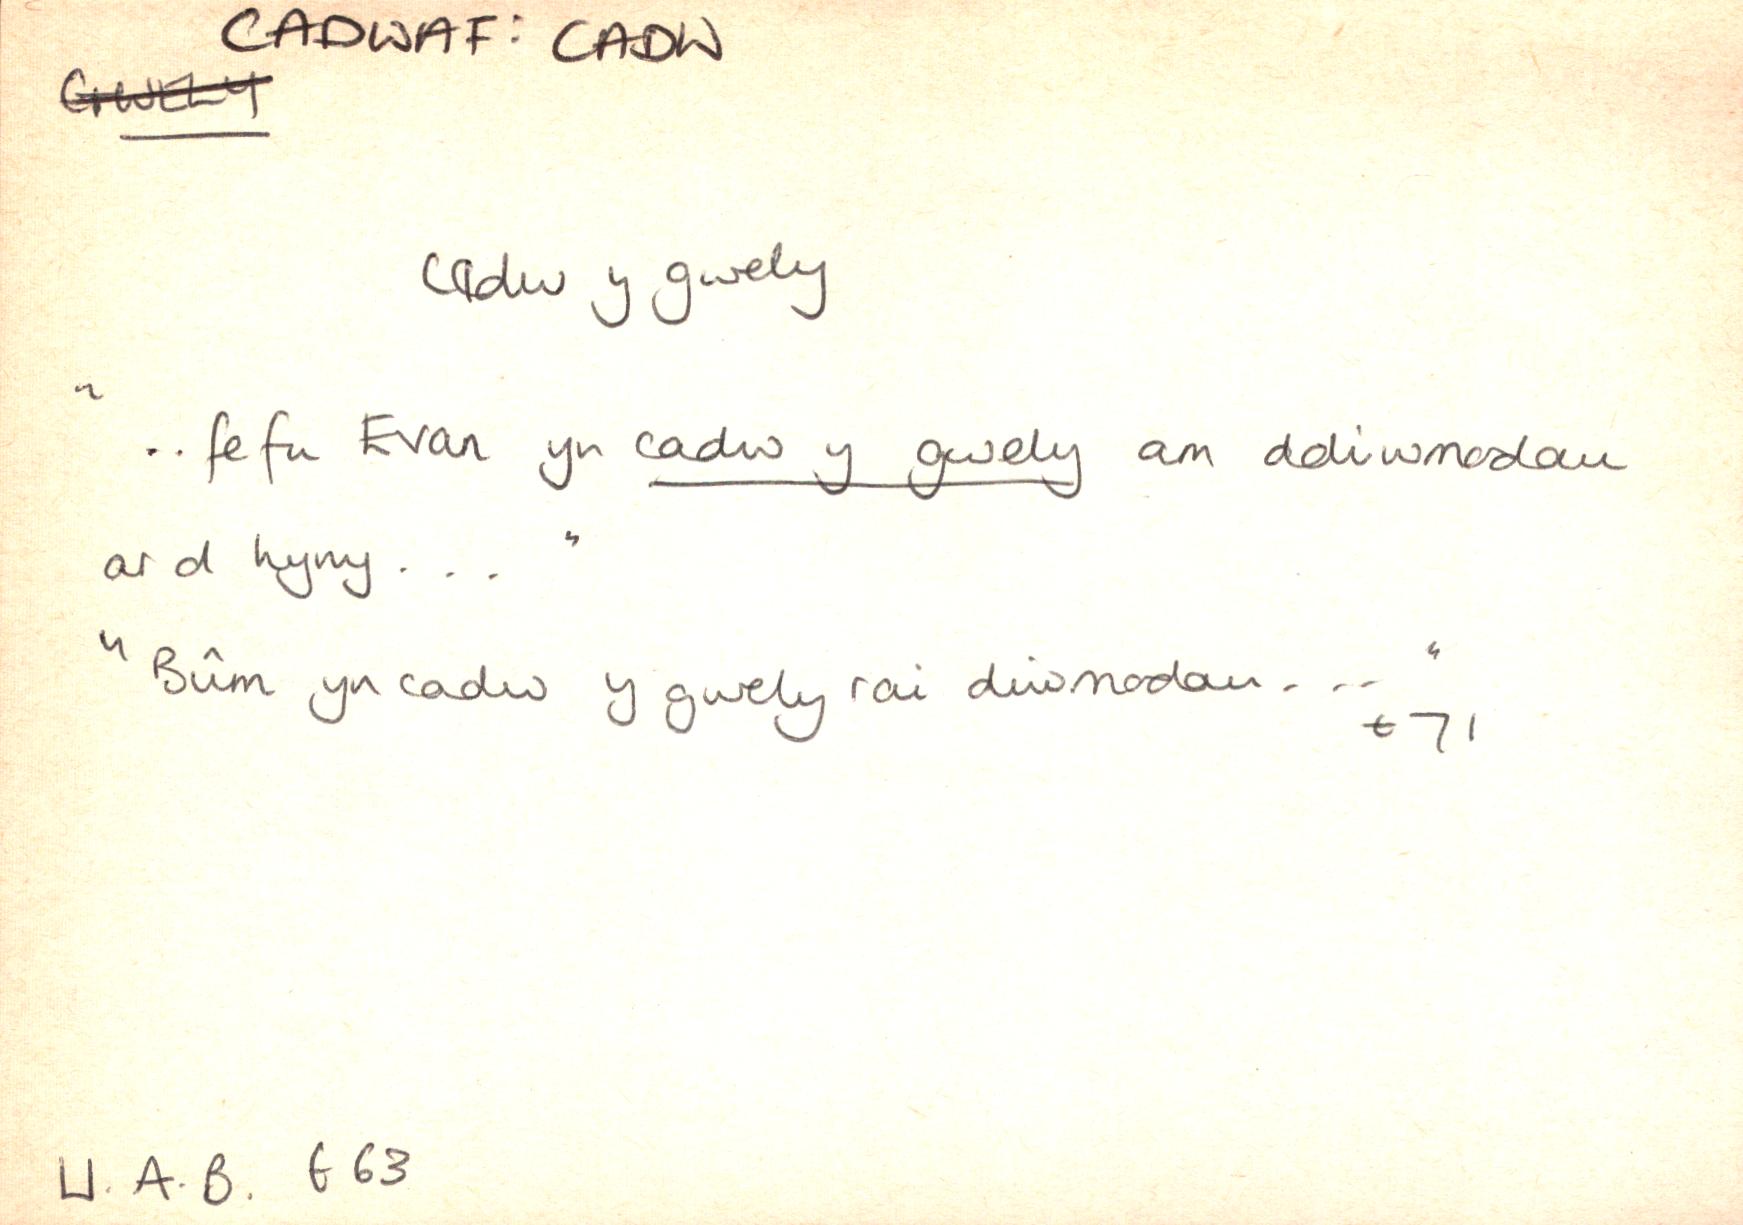 CADWAF: CADW
GWELY
Cadw y gwely
"..fe fu Evan yn cadw y gwely am ddiwrnodau
ar ol hyny. . . "
"Bûm yn cadw y gwely rai diwrnodau. . .. "
t 71
Ll. A. B. t 63